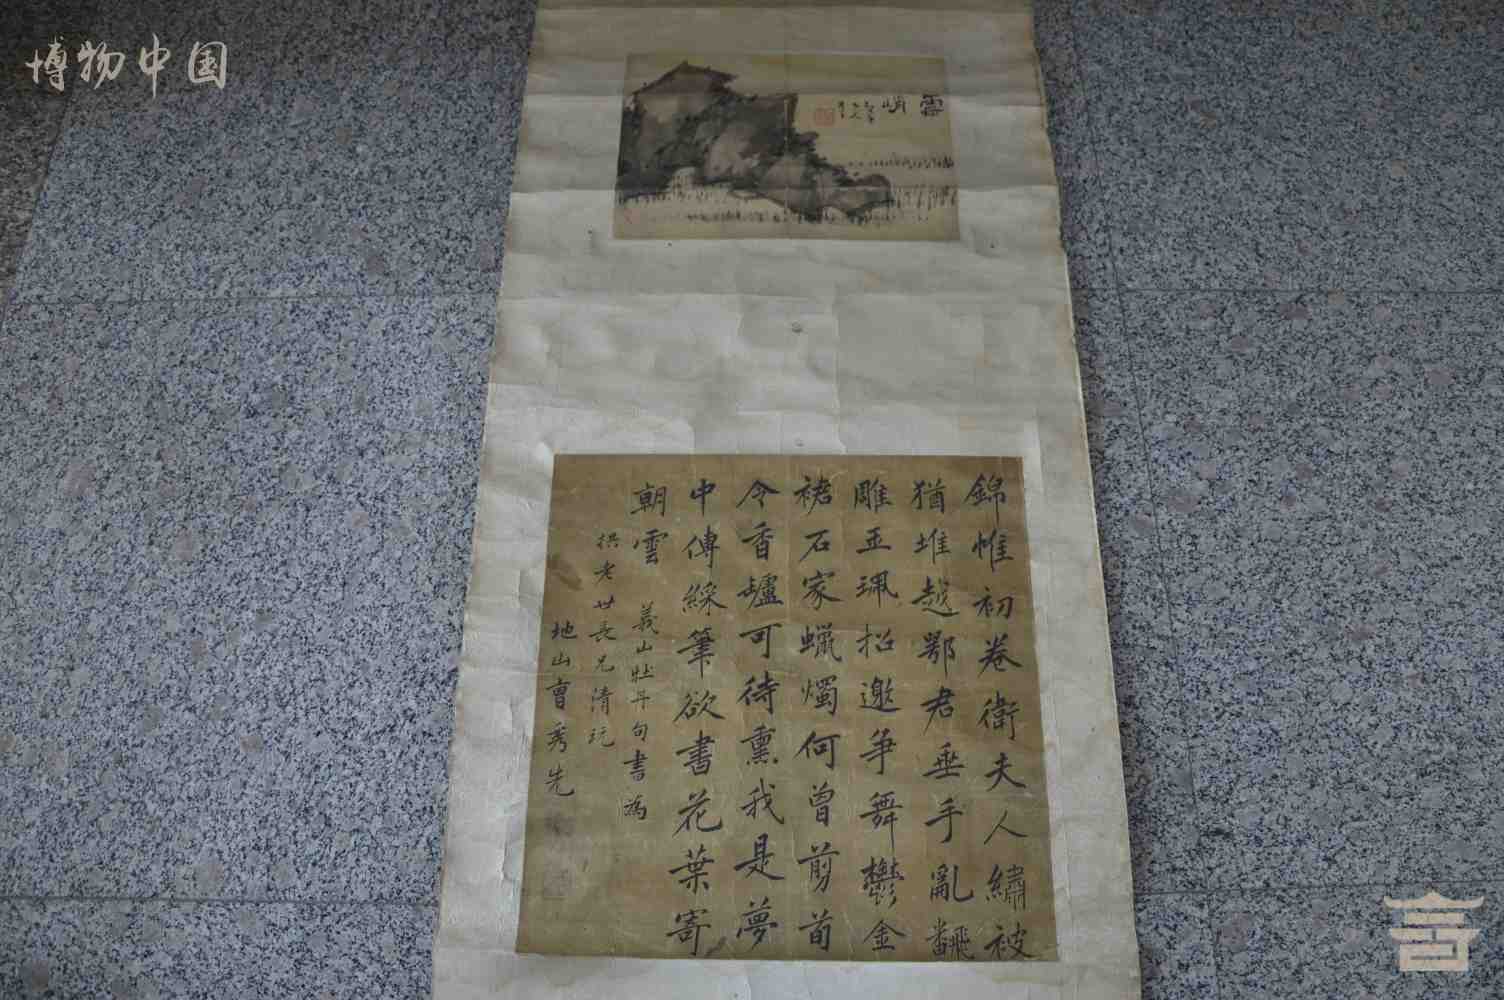 博物中国
錦帷初卷衛夫人繡被
猶堆越鄂君垂手亂飜
雕玉珮招邀爭舞鬱金
裙石家蠟燭何曾剪荀
令香罏可待熏我是夢
中傳綵筆欲書花葉寄
朝雲
義山牡丹句書為
拱老世長兄清玩
地山曹秀先